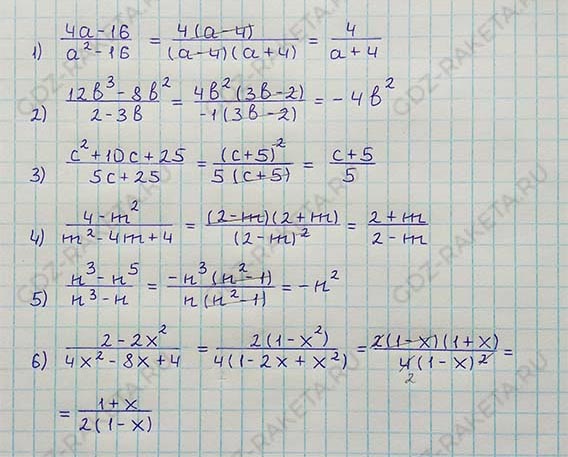 1) (4a-16)/(a²-16) = (4(a-4))/((a-4)(a+4)) = 4/(a+4)
2) (12b³-8b²)/(2-3b) = (4b²(3b-2))/(-1(3b-2)) = -4b²
3) (c²+10c+25)/(5c+25) = (c+5)²/(5(c+5)) = (c+5)/5
4) (4-m²)/(m²-4m+4) = ((2-m)(2+m))/(2-m)² = (2+m)/(2-m)
5) (n³-n⁵)/(n³-n) = (-n³(n²-1))/(n(n²-1)) = -n²
6) (2-2x²)/(4x²-8x+4) = (2(1-x²))/(4(1-2x+x²)) = (2(1-x)(1+x))/(4(1-x)²) =
2
= (1+x)/(2(1-x))
GDZ-RAKETA.RU
GDZ-RAKETA.RU
GDZ-RAKETA.RU
GDZ-RAKETA.RU